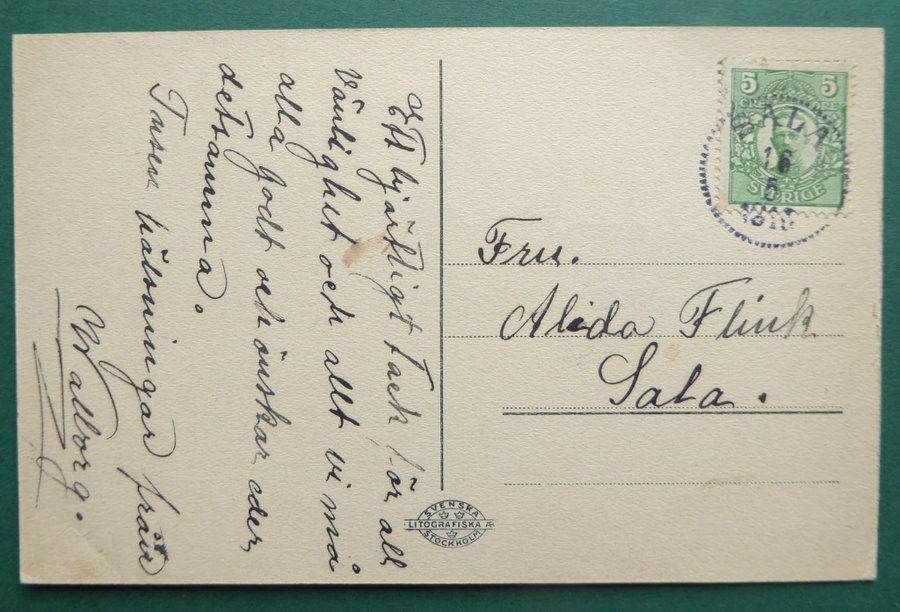 Ett hjärtligt tack för all
Vänlighet och allt vi må
alla godt och önskar eder
detsamma.
Tusen hälsningar från
Walborg.
5 5
SVERIGE
SALA
15
5
Fru.
Alida Flink
Sala.
SVENSKA
LITOGRAFISKA Æ
STOCKHOLM